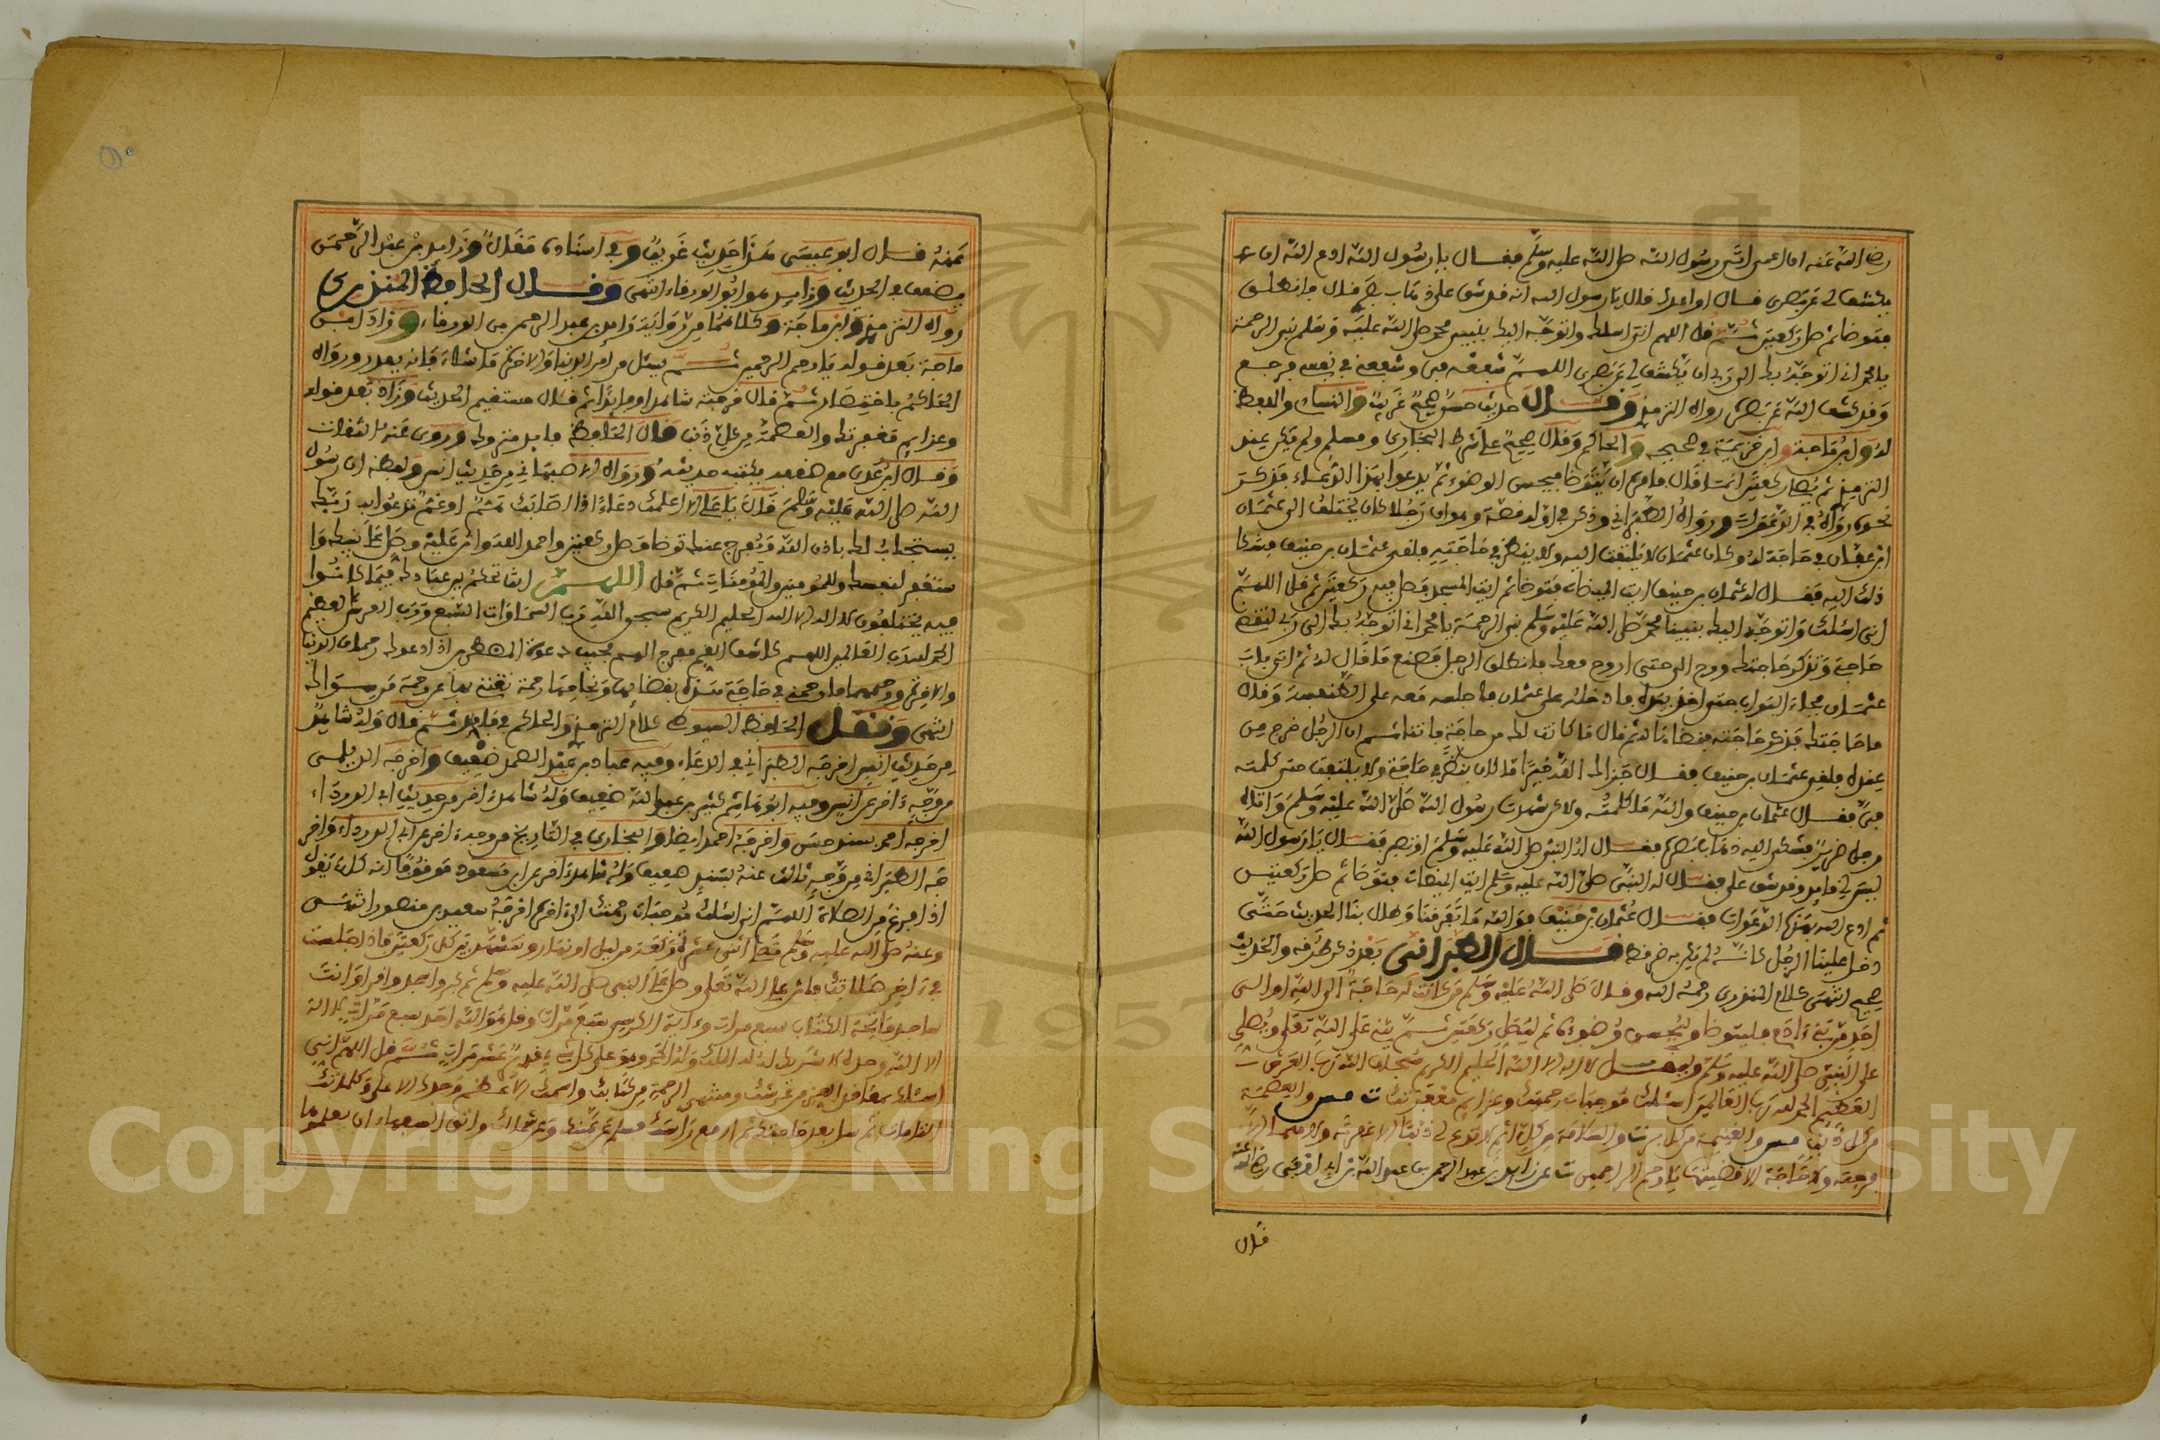 رضي الله عنه ان اعمى اتى رسول الله صلى الله عليه وسلم فقال يا رسول الله ادع الله ان
يكشف لي عن بصري قال او ادعك قال يا رسول الله انه قد شق علي ذهاب بصري قال فانطلق
فتوضا ثم صل ركعتين ثم قل اللهم اني اسئلك واتوجه اليك بنبيي محمد صلى الله عليه وسلم نبي الرحمة
يا محمد اني اتوجه بك الى ربي ان يكشف لي عن بصري اللهم شفعه في وشفعني في نفسي فرجع
وقد كشف الله عن بصره رواه الترمذي وقال حديث حسن صحيح غريب والنساءي واللفظ
له وابن ماجة وابن خزيمة في صحيحه والحاكم وقال صحيح على شرط البخاري ومسلم وليس عند
الترمذي ثم صل ركعتين انما قال فامره ان يتوضا فيحسن الوضوء ثم يدعو بهذا الدعاء فذكر
نحوه رواه في الدعوات ورواه الطبراني وذكر في اوله قصة وهو ان رجلا كان يختلف الى عثمان
ابن عفان في حاجة له وكان عثمان لا يلتفت اليه ولا ينظر في حاجته فلقي عثمان بن حنيف فشكا
ذلك اليه فقال له عثمان بن حنيف ايت الميضاة فتوضا ثم ايت المسجد فصل فيه ركعتين ثم قل اللهم
اني اسئلك واتوجه اليك بنبينا محمد صلى الله عليه وسلم نبي الرحمة يا محمد اني اتوجه بك الى ربي لتقضى
حاجتي وتذكر حاجتك ورح الي حتى اروح معك فانطلق الرجل فصنع ما قال له ثم اتى باب
عثمان فجاء البواب حتى اخذ بيده فادخله على عثمان فاجلسه معه على الطنفسة وقال
ما حاجتك فذكر حاجته فقضاها له ثم قال ما كانت لك من حاجة فاتنا ثم ان الرجل خرج من
عنده فلقي عثمان بن حنيف فقال جزاك الله خيرا ما كان ينظر في حاجتي ولا يلتفت حتى كلمته
في فقال عثمان بن حنيف والله ما كلمته ولكن شهدت رسول الله صلى الله عليه وسلم واتاه
رجل ضرير فشكى اليه ذهاب بصره فقال له النبي صلى الله عليه وسلم او تصبر فقال يا رسول الله
ليس لي قايد وقد شق علي فقال له النبي صلى الله عليه وسلم ايت الميضاة فتوضا ثم صل ركعتين
ثم ادع بهذه الدعوات فقال عثمان بن حنيف فوالله ما تفرقنا وطال بنا الحديث حتى
دخل علينا الرجل كانه لم يكن به ضر قط قال الطبراني بعد ذكر طرقه والحديث
صحيح انتهى كلام المنذري رحمه الله وقال صلى الله عليه وسلم من كانت له حاجة الى الله او الى
احد من بني ادم فليتوضا وليحسن وضوءه ثم ليصل ركعتين ثم يثني على الله تعلى ويصلي
على النبي صلى الله عليه وسلم وليقل لا اله الا الله الحليم الكريم سبحان الله رب العرش
العظيم الحمد لله رب العالمين اسئلك موجبات رحمتك وعزايم مغفرتك والعصمة
من كل ذنب والغنيمة من كل بر والسلامة من كل اثم لا تدع لي ذنبا الا غفرته ولا هما الا
فرجته ولا حاجة الا قضيتها يا ارحم الراحمين ت عن زايد بن عبد الرحمن عن عبد الله بن ابي اوفى رضي الله عنه
قال
عنه قال ابو عيسى هذا حديث غريب وفي اسناده مقال وزايد بن عبد الرحمن
يضعف في الحديث وزايد هو ابو الورقاء انتهى وقال الحافظ المنذري
رواه الترمذي وابن ماجة وكلاهما من رواية زايد بن عبد الرحمن ابي الورقاء وزاد ابن
ماجة بعد قوله يا ارحم الراحمين ثم يسئل من امر الدنيا والاخرة ما شاء فانه يقدر ورواه
الحاكم باختصار ثم قال اخرجته شاهدا وزايد مستقيم الحديث وزاد بعد قوله
وعزايم مغفرتك والعصمة من كل ذنب قال الحافظ فايد متروك وروى عنه الثقات
وقال ابن عدي مع ضعفه يكتب حديثه ورواه الاصبهاني من حديث انس ولفظه ان رسول
الله صلى الله عليه وسلم قال يا علي الا اعلمك دعاء اذا اصابك هم او غم تدعو به ربك
فيستجاب لك باذن الله ويفرج عنك توضا وصل ركعتين واحمد الله واثن عليه وصل على نبيك وا
ستغفر لنفسك وللمومنين والمومنات ثم قل اللهم انت تحكم بين عبادك فيما كانوا
فيه يختلفون لا اله الا الله الحليم الكريم سبحان الله رب السماوات السبع ورب العرش العظيم
الحمد لله رب العالمين اللهم كاشف الغم مفرج الهم مجيب دعوة المضطرين اذا دعوك رحمان الدنيا
والاخرة ورحيمهما فارحمني في حاجتي هذه بقضايها ونجاحها رحمة تغنني بها عن رحمة من سواك
انتهى ونقل الحافظ السيوطي كلام الترمذي والحاكم في فايد ثم قال وله شاهد
من حديث انس اخرجه الطبراني في الدعاء وفيه عباد بن عبد الصمد ضعيف واخرجه الديلمي
من وجه ءاخر عن انس وفيه ابو هاشم كثير بن عبد الله ضعيف وله شاهد ءاخر من حديث ابي الدرداء
اخرجه احمد بسند حسن واخرجه احمد ايضا والبخاري في التاريخ من وجه ءاخر عن ابي الدرداء واخر
جه الطبراني من وجه ثالث عنه بسند ضعيف وله شاهد ءاخر عن ابن مسعود موقوفا انه كان يقول
اذا فرغ من الصلاة اللهم اني اسئلك موجبات رحمتك الى ءاخره اخرجه سعيد بن منصور انتهى
وعنه صلى الله عليه وسلم قال اثنتي عشرة ركعة من ليل او نهار وتتشهد بين كل ركعتين فاذا جلست
في ءاخر صلاتك فاثن على الله تعلى وصل على النبي صلى الله عليه وسلم ثم كبر واسجد واقرا وانت
ساجد فاتحة الكتاب سبع مرات وءاية الكرسي سبع مرات وقل هو الله احد سبع مرات لا اله
الا الله وحده لا شريك له له الملك وله الحمد وهو على كل شيء قدير عشر مرات ثم قل اللهم اني
اسئلك بمعاقد العز من عرشك ومنتهى الرحمة من كتابك واسمك الاعظم وجدك الاعلى وكلماتك
التامات ثم سل بعد حاجتك ثم ارفع راسك فسلم عن يمينك وعن شمالك واتق السفهاء ان يعلموها